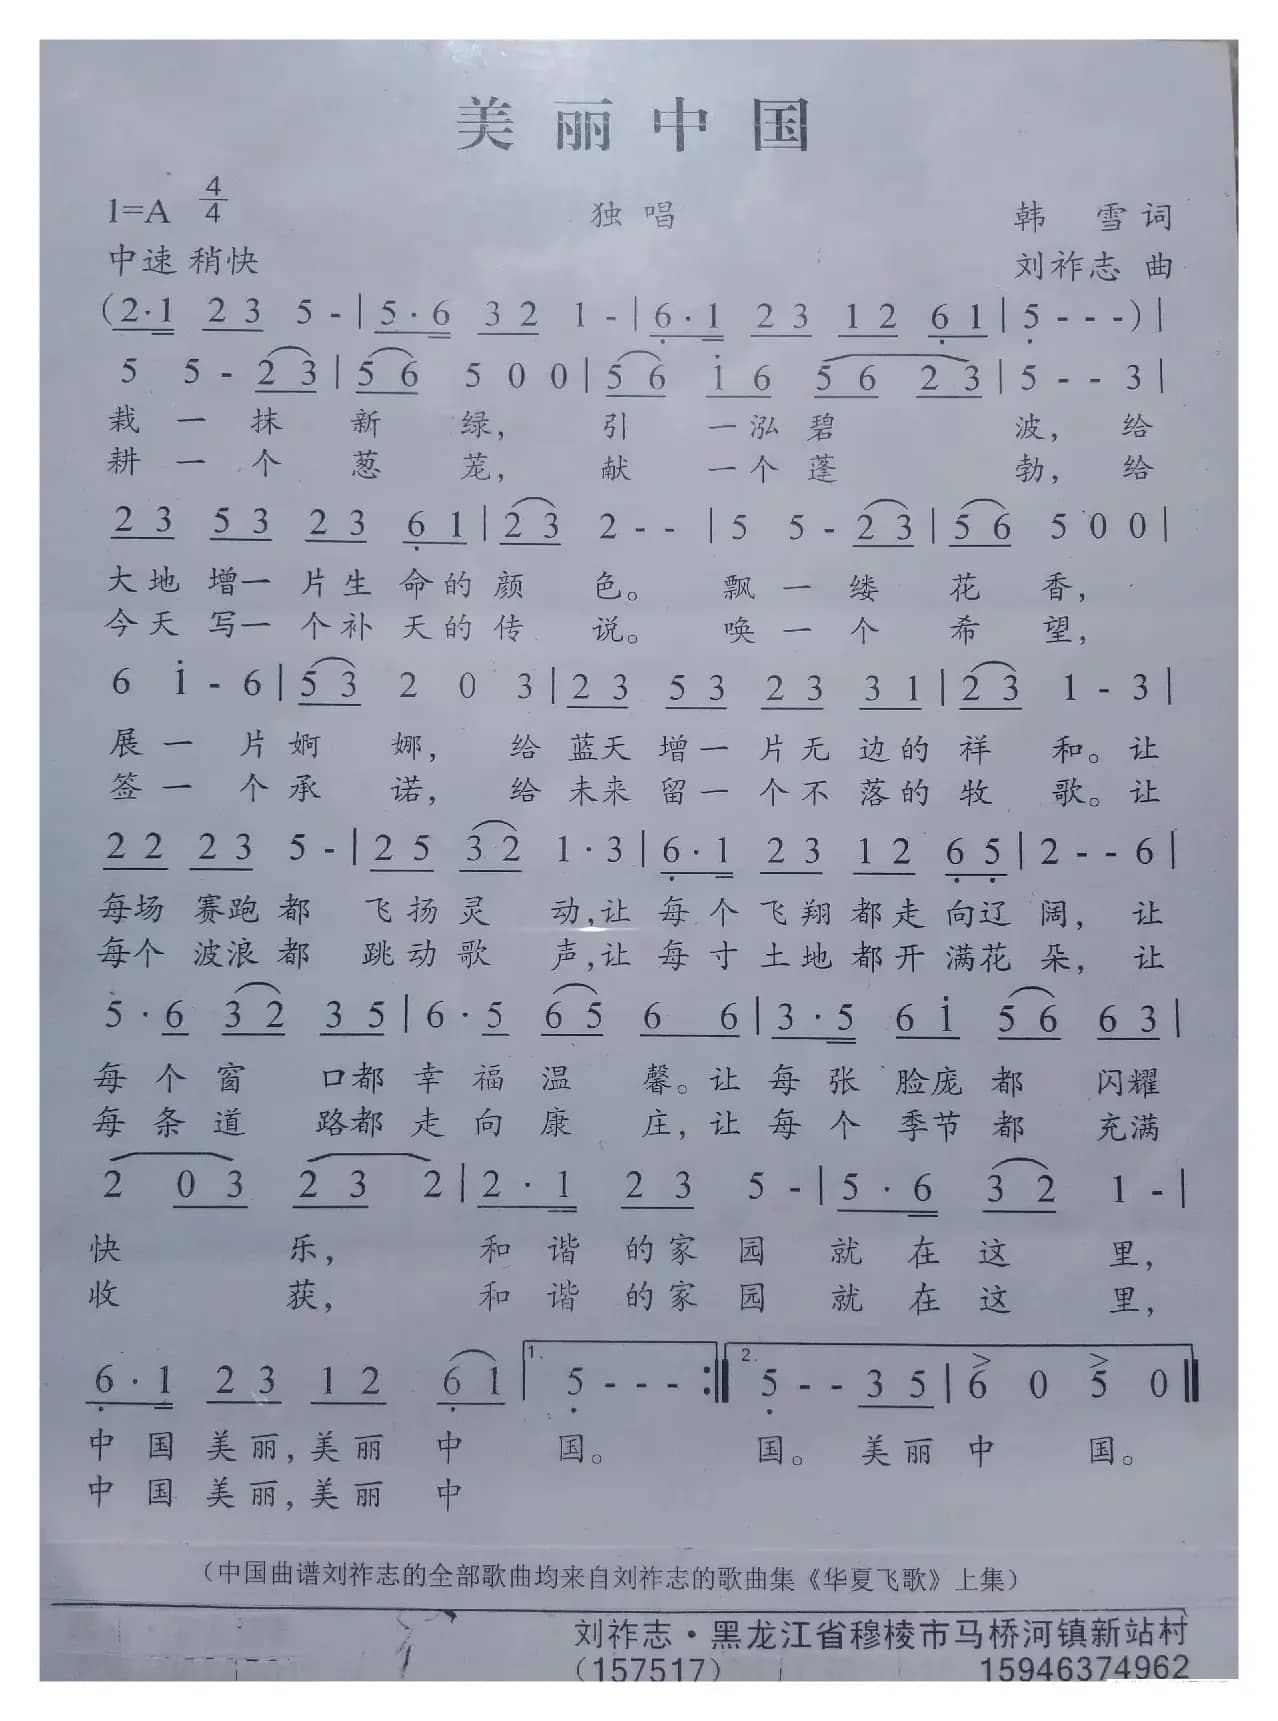 美丽中国
1=A 4/4 独唱 韩雪词
中速 稍快 刘祚志 曲
(2·1 23 5-|5·6 32 1-|6·1 23 12 61|5---)|
5 5-23|56 500|56 i6 56 23|5--3|
栽一抹新绿,引一泓碧波,给
耕一个葱茏,献一个蓬勃,给
23 53 23 61|23 2--|5 5-23|56 500|
大地增一片生命的颜色。飘一缕花香,
今天写一个补天的传说。唤一个希望,
6 i-6|53 2 0 3|23 53 23 31|23 1-3|
展一片婀娜,给蓝天增一片无边的祥和。让
签一个承诺,给未来留一个不落的牧歌。让
22 23 5-|25 32 1·3|6·1 23 12 65|2--6|
每场赛跑都飞扬灵动,让每个飞翔都走向辽阔,让
每个波浪都跳动歌声,让每寸土地都开满花朵,让
5·6 32 35|6·5 65 6 6|3·5 6i 56 63|
每个窗口都幸福温馨。让每张脸庞都闪耀
每条道路都走向康庄,让每个季节都充满
2 03 23 2|2·1 23 5-|5·6 32 1-|
快乐,和谐的家园就在这里,
收获,和谐的家园就在这里,
6·1 23 12 61|1. 5---:‖2. 5--35|6 0 5 0‖
中国美丽,美丽中国。国。美丽中国。
中国美丽,美丽中
(中国曲谱刘祚志的全部歌曲均来自刘祚志的歌曲集《华夏飞歌》上集)
刘祚志·黑龙江省穆棱市马桥河镇新站村
(157517) 15946374962